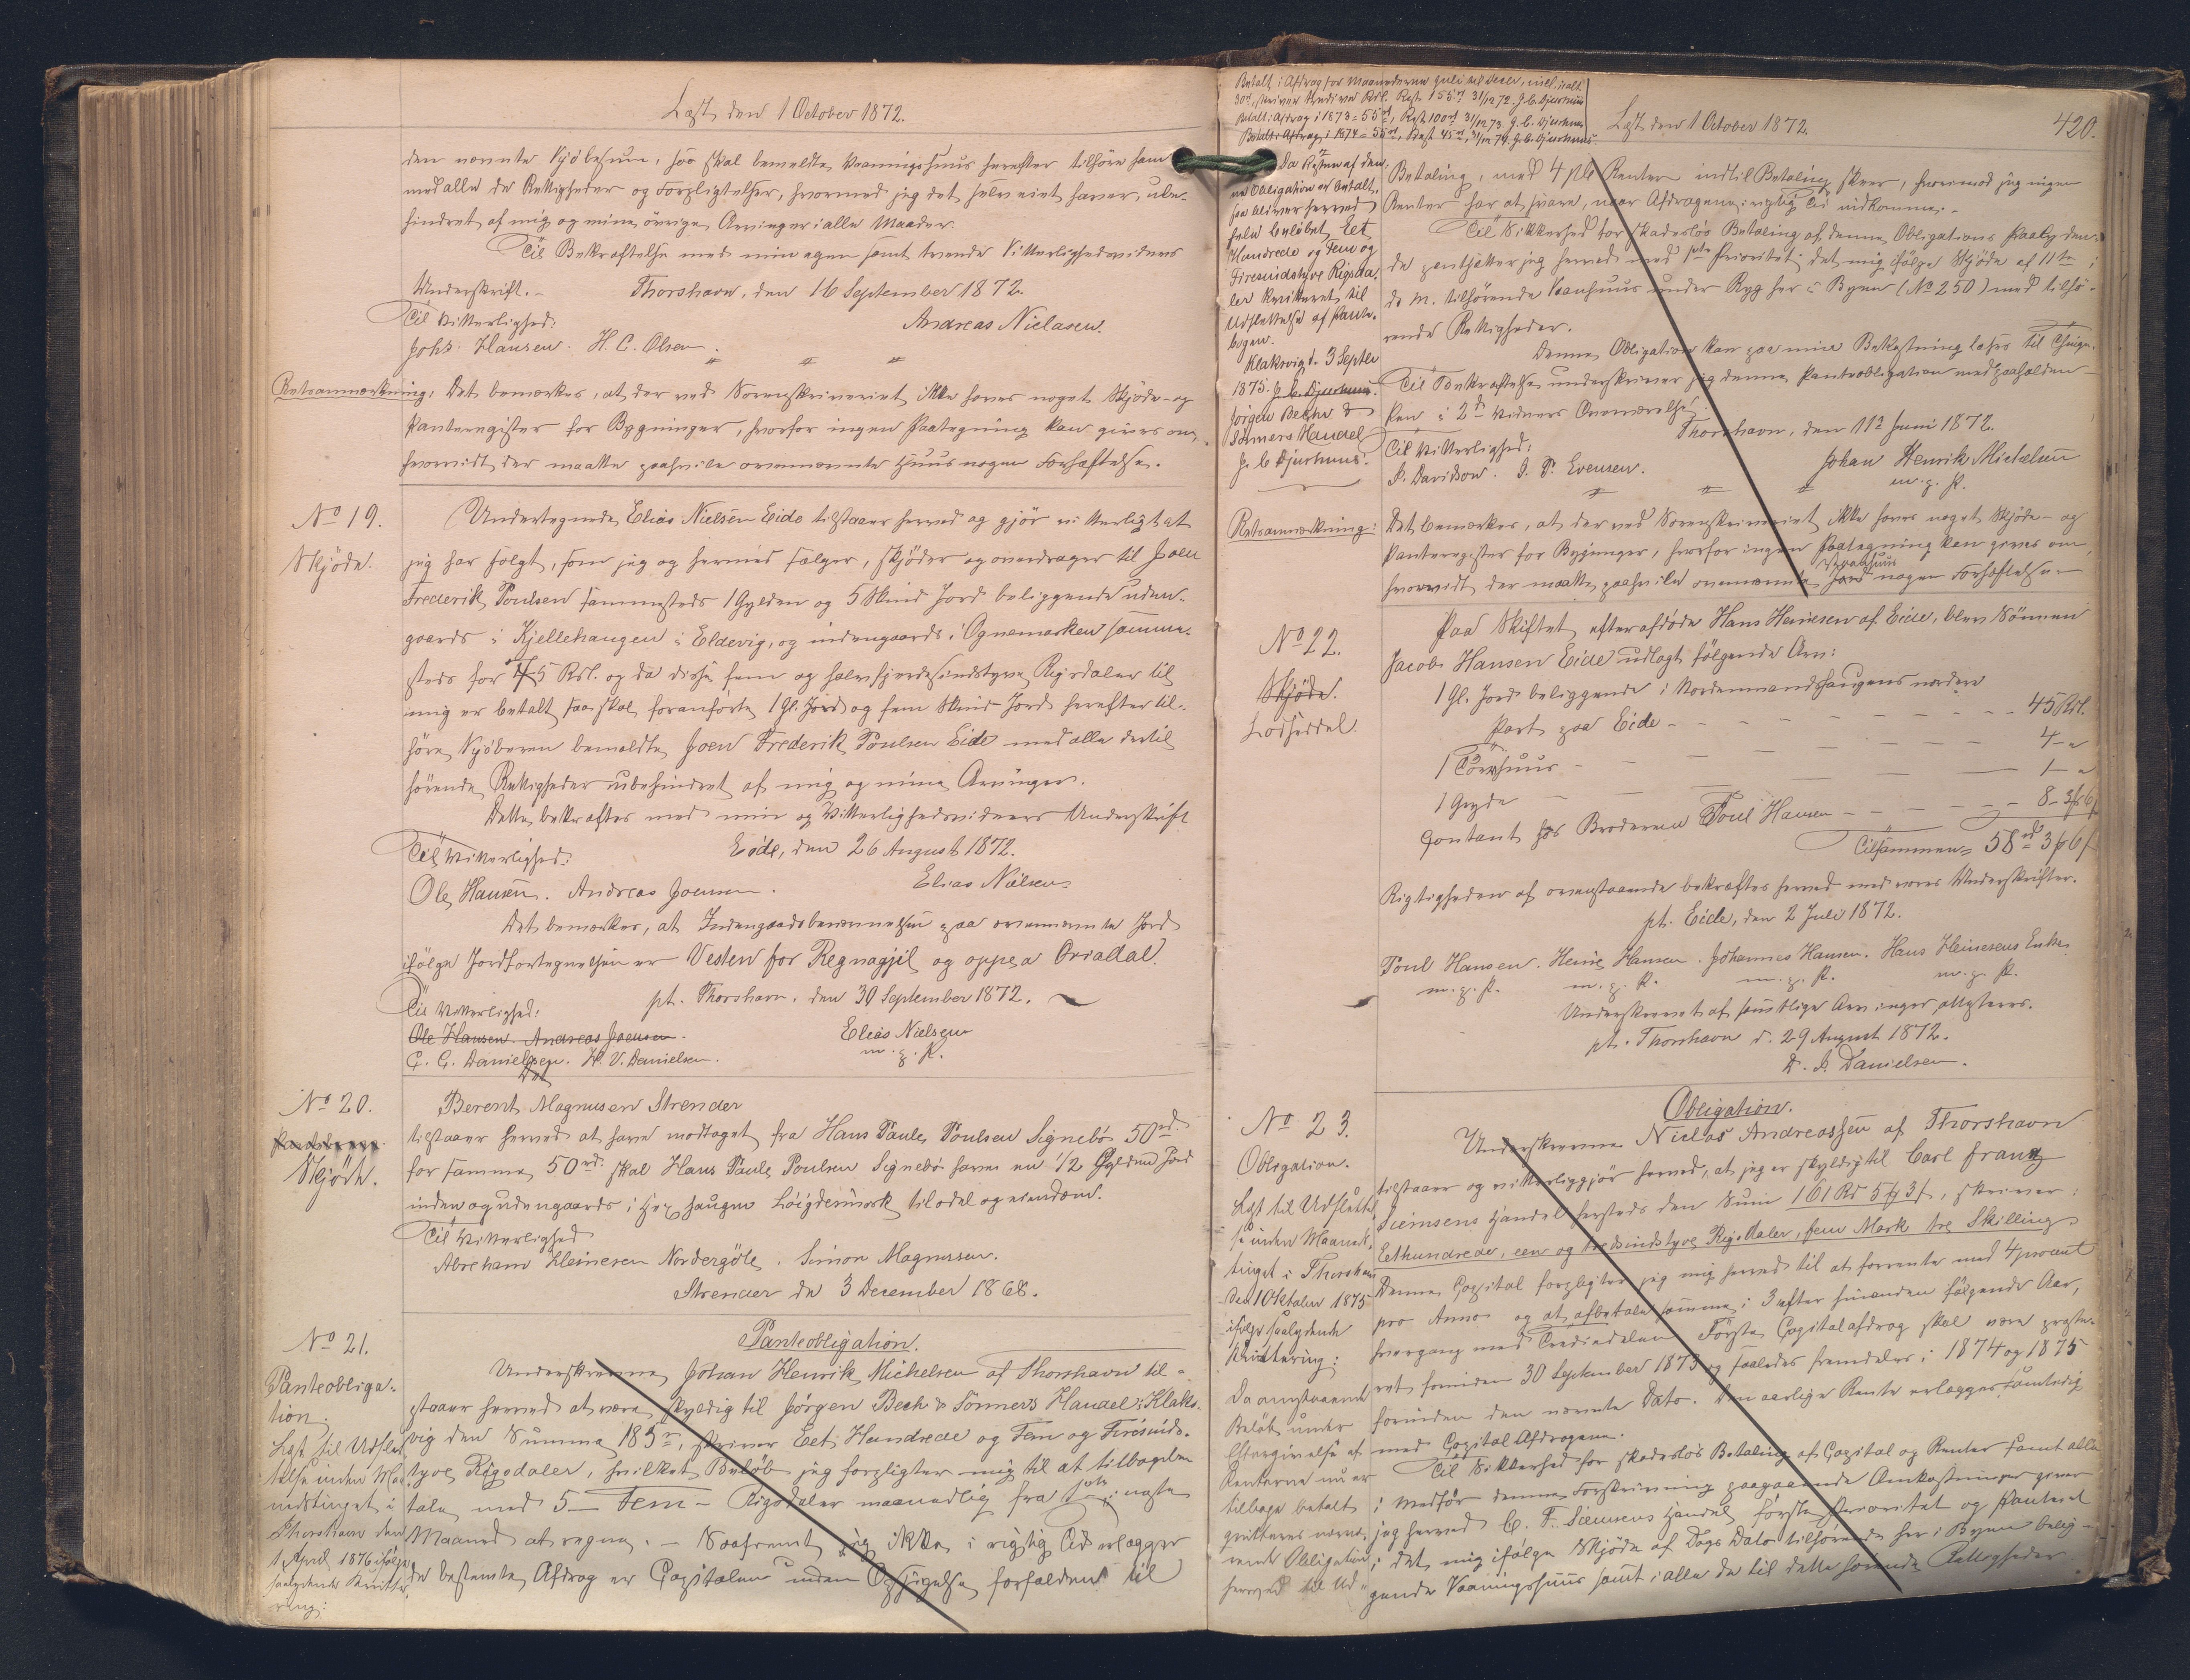 Læst den 1 October 1872.
den nævnte Kjöbesum, saa skal bemeldte Vaaningshuus herefter tilhöre ham
med alle de Rettigheder og Forpligtelser, hvormed jeg det selv eiet haver, ube-
hindret af mig og mine övrige Arvinger i alle Maader.
Til Bekræftelse med min egen samt tvende Vitterlighedsvidners
Underskrift.-
Thorshavn, den 16 September 1872.
Til Vitterlighed:
Andreas Nielasen.
Johs. Hansen. H. C. Olsen.
Retsanmærkning: Det bemærkes, at der ved Sorenskriveriet ikke haves noget Skjöde- og
Panteregister for Bygninger, hvorfor ingen Paategning kan gives om,
hvorvidt der maatte paahvile ovennævnte Huus nogen Forhæftelse.
No 19.
Skjöde.
Undertegnede Elias Nielsen Eide tilstaaer herved og gjör vitterligt at
jeg har solgt, som jeg og hermed sælger, skjöder og overdrager til Joen
Frederik Poulsen sammesteds 1 Gylden og 5 Skind Jord beliggende uden-
gaards i Kjellehaugen i Eldevig, og indengaards i Ognemarken samme-
steds for 75 Rdl. og da disse fem og halvfjerdesindstyve Rigsdaler til
mig er betalt saa skal foranförte 1 Gl. Jord og fem Skind Jord herefter til-
höre Kjöberen bemeldte Joen Frederik Poulsen Eide med alle dertil
hörende Rettigheder ubehindret af mig og mine Arvinger.
Dette bekræftes med min og Vitterlighedsvidners Underskrift
Eide, den 26 August 1872.
Til Vitterlighed:
Elias Nielsen
Ole Hansen. Andreas Joensen.
Det bemærkes, at Indengaardsbenævnelsen paa ovennævnte Jord
ifölge Jordfortegnelsen er Vesten for Regnagjil og oppe a Oriadal.
pt. Thorshavn, den 30 September 1872.
Til Vitterlighed:
Ole Hansen. Andreas Joensen.
Elias Nielsen
m. p. P.
C. C. Danielsen. H. V. Danielsen.
No 20.
Skjöde.
Berent Magnusen Strender
tilstaaer herved at have modtaget fra Hans Paule Poulsen Signebö 50 rd.
for samme 50 rd. skal Hans Paule Poulsen Signebö have en 1/2 Gylden Jord
inden og udengaards i haugen Löigdernmork til odel og eiendom.
Til Vitterlighed
Abreham Heinesen Nordergöte. Simon Magnusen.
Strender de 3 December 1868.
No 21.
Panteobliga-
tion.
Læst til Udslet-
telse inden Maa-
nedstinget i
Thorshavn den
1 April 1876 ifölge
saalydende Kvitte-
ring:
Panteobligation.
Underskrevne Johan Henrik Michelsen af Thorshavn til-
staaer herved at være skyldig til Jörgen Bech & Sönners Handel i Klaks-
vig den Summa 185 rd, skriver Eet Hundrede og Fem og Firesinds-
tyve Rigsdaler, hvilket Belöb jeg forpligter mig til at tilbagebe-
tale med 5 - Fem - Rigsdaler maanedlig fra 1ste i næste
Maaned at regne. - Saafremt jeg ikke i rigtig Tid erlægger
de bestemte Afdrag er Capitalen uden Opsigelse forfalden til
Betalt i Afdrag for Maanederne Juli til Decbr, incl. ialt
30 rd, skriver Rdl. Rest 155 rd 31/12 72. J. C. Djurhuus
Betalt i Afdrag i 1873 = 55 rd, Rest 100 rd 31/12 73 J. C. Djurhuus
Betalt i Afdrag i 1874 = 55 rd, Rest 45 rd, 31/12 74. J. C. Djurhuus
Læst den 1 October 1872.
420.
Da Resten af den-
ne Obligation er betalt,
saa bliver herved
hele belöbet Eet
Hundrede og Fem og
Firesindstyve Rigsda-
ler kvitteret til
Udslettelse af Pante-
bogen.
Klaksvig d. 3 Septbr
1875. J. C. Djurhuus.
Jörgen Bech &
Sönners Handel
J. C. Djurhuus.
Betaling, med 4 pCt Renter indtil Betaling skeer, hvorimod jeg ingen
Renter har at svare, naar Afdragene i rigtig Tid indkomme.-
Til Sikkerhed for skadeslös Betaling af denne Obligations Paalyden-
de pantsætter jeg herved med 1ste Prioritet det mig ifölge Skjöde af 11te
d. M. tilhörende Vaanhuus under Ryg her i Byen (No 250) med tilhö-
rende Rettigheder.
Denne Obligation kan paa min Bekostning læses til Thinge.
Til Bekræftelse underskriver jeg denne Panteobligation med paaholden
Pen i 2de Vidners Overværelse.
Thorshavn, den 11te Juni 1872.
Til Vitterlighed:
P. Davidson. J. P. Evensen.
Johan Henrik Michelsen
m. p. P.
Retsanmærkning:
Det bemærkes, at der ved Sorenskriveriet ikke haves noget Skjöde- og
Panteregister for Bygninger, hvorfor ingen Paategning kan gives om,
hvorvidt der maatte paahvile ovennævnte Jord Vaanhuus nogen Forhæftelse.
No 22.
Skjöde.
Lodseddel.
Paa Skiftet efter afdöde Hans Heinesen af Eide, blev Sönnen
Jacob Hansen Eide udlagt fölgende Arv:
1 Gl. Jord beliggende i Nordenmandshaugens nordere
Part paa Eide - - - 45 Rdl.
1 Törvhuus - - - 4 - "
1 Gryde - - - 1 - "
Contant hos Broderen Poul Hansen - - - 8 - 3 6
Tilsammen = 58 rd 3 6
Rigtigheden af ovenstaaende bekræftes herved med vores Underskrifter.
pt. Eide, den 2 Juli 1872.
Poul Hansen. Heine Hansen. Johannes Hansen. Hans Heinesens Enke
m. p. P. m. p. P. m. p. P. m. p. P.
Underskrevet af samtlige Arvinger attesteres.
pt. Thorshavn d. 29 August 1872.
D. P. Danielsen.
No 23.
Obligation.
Læst til Udslettel-
se inden Maaneds-
tinget i Thorshavn
den 1 Oktober 1875
ifölge saalydende
Kvittering:
Da ovenstaaende
Belöb under
Eftergivelse af
Renterne nu er
tilbage betalt
qvitteres nærvæ-
rende Obligation
herved til Ud-
Obligation.
Underskrevne Niclas Andreassen af Thorshavn
tilstaaer og vitterliggjör herved, at jeg er skyldig til Carl Franz
Siemsens Handel hersteds den Sum 161 Rd 5 3, skriver:
Eethundrede, een og tredsindstyve Rigsdaler, fem Mark tre Skilling
Denne Capital forpligter jeg mig herved til at forrente med 4 procent
pro Anno og at afbetale samme i 3 efter hinanden fölgende Aar,
hvergang med Trediedelen. Förste Capitalafdrag skal være præste-
ret forinden 30 September 1873 og saaledes fremdeles i 1874 og 1875
forinden den nævnte Dato. Den aarlige Rente erlægges samtidig
med Capital Afdragene.
Til Sikkerhed for skadeslös Betaling af Capital og Renter samt alle
i Medför denne Forskrivning paagaaende Omkostninger giver
jeg herved C. F. Siemsens Handel förste Prioritet og Panteret
i det mig ifölge Skjöde af Dags Dato tilhörende her i Byen belig-
gende Vaaningshuus samt i alle de til dette hörende Rettigheder